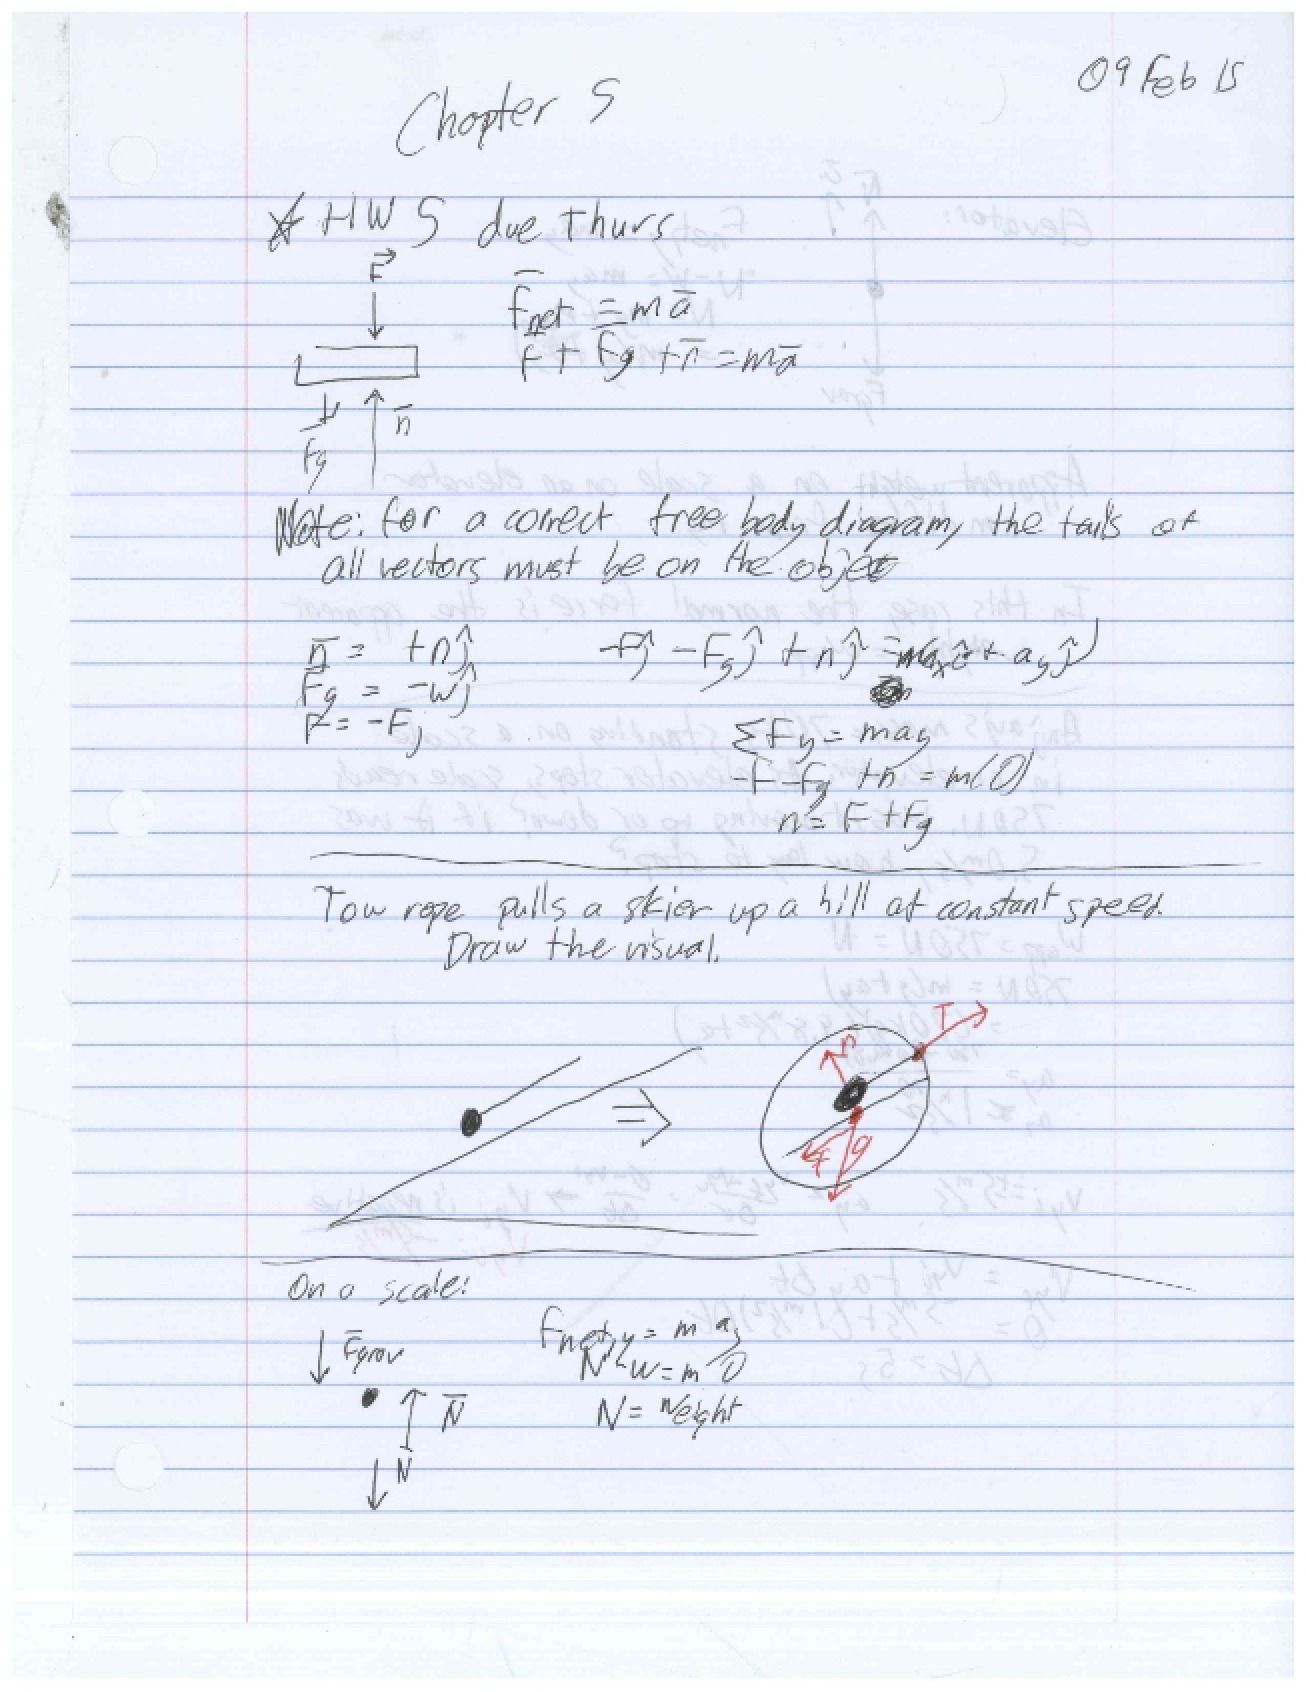 09 Feb 15
Chapter 5
* HW 5 due Thurs
F
F̄net = mā
F̄ + F̄g + n̄ = mā
n̄
Fg
Note: For a correct free body diagram, the tails of
all vectors must be on the object
n̄ = +nĵ
-Fĵ - Fgĵ + nĵ = m(axî + ayĵ)
F̄g = -wĵ
F = -Fj
ΣFy = may
-F - Fg + n = m(0)
n = F + Fg
Tow rope pulls a skier up a hill at constant speed.
Draw the visual.
T
n
⇒
f g
On a scale:
F̄grav
Fnet,y = m ay
N - w = m 0
N̄
N = weight
N